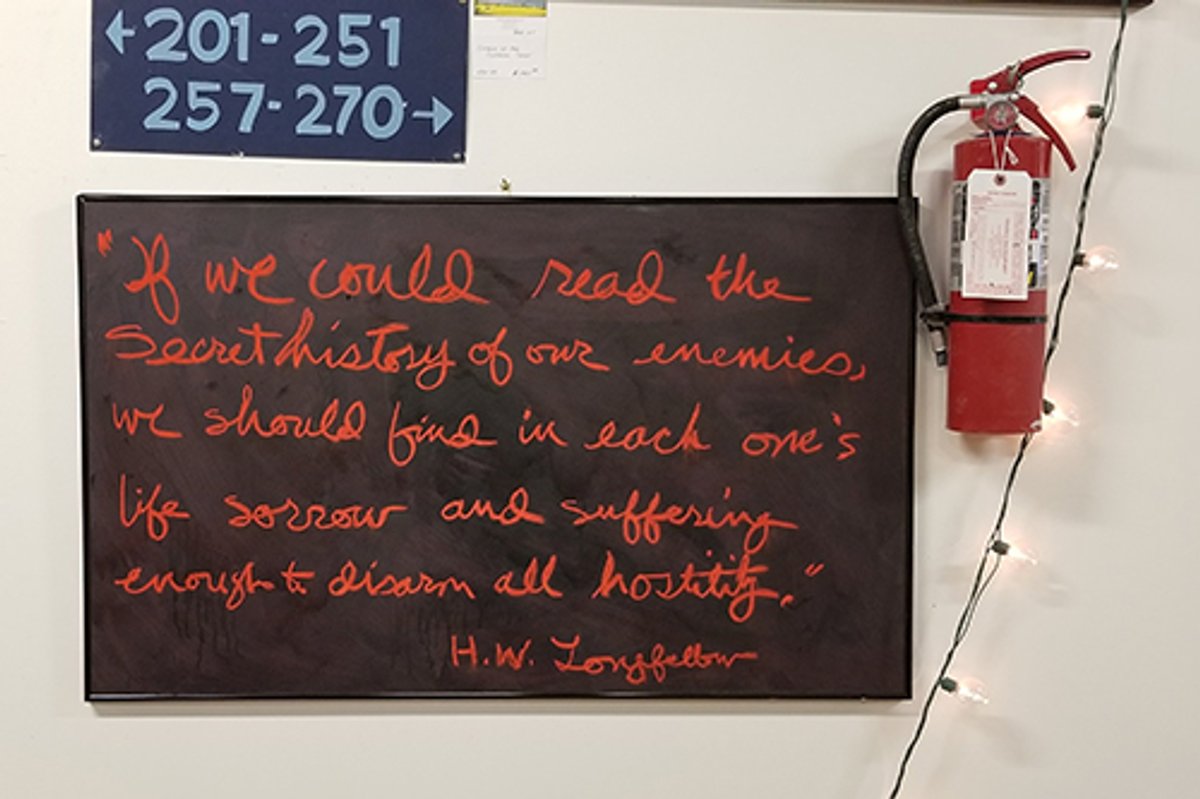 ←201-251
257-270→
"If we could read the
secret history of our enemies,
we should find in each one's
life sorrow and suffering
enough to disarm all hostility."
H.W. Longfellow